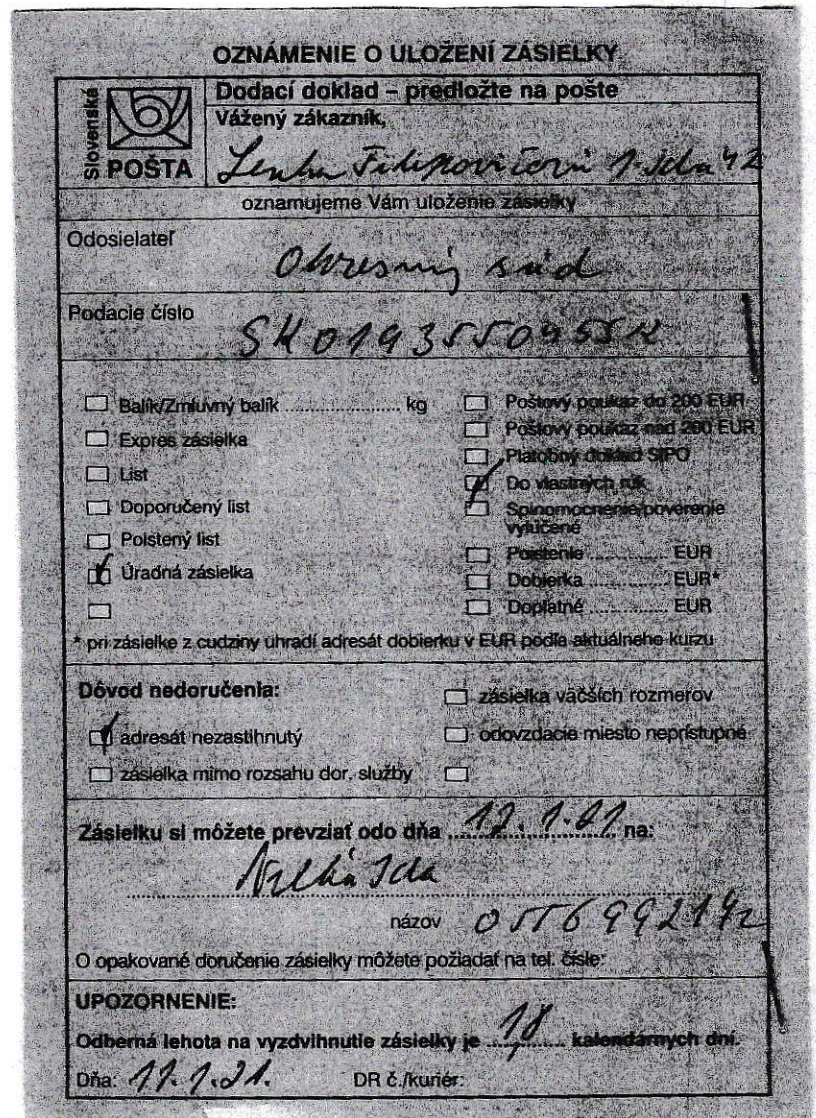 OZNÁMENIE O ULOŽENÍ ZÁSIELKY
Slovenská POŠTA
Dodací doklad – predložte na pošte
Vážený zákazník,
Lenka Filipovičová 42
oznamujeme Vám uloženie zásielky
Odosielateľ
Okresný súd
Podacie číslo
Balík/Zmluvný balík ...................... kg
Expres zásielka
List
Doporučený list
Poistený list
Úradná zásielka
Poštový poukaz do 200 EUR
Poštový poukaz nad 200 EUR
Platobný doklad SIPO
Do vlastných rúk
Splnomocnenie/poverenie
vylúčené
Poistenie ............... EUR
Dobierka ............... EUR*
Doplatné ............... EUR
* pri zásielke z cudziny uhradí adresát dobierku v EUR podľa aktuálneho kurzu
Dôvod nedoručenia:
adresát nezastihnutý
zásielka mimo rozsahu dor. služby
zásielka väčších rozmerov
odovzdacie miesto neprístupné
Zásielku si môžete prevziať odo dňa 12.1.21 na:
Veľká Ida
názov 0556992142
O opakované doručenie zásielky môžete požiadať na tel. čísle:
UPOZORNENIE:
Odberná lehota na vyzdvihnutie zásielky je 18 kalendárnych dní.
Dňa: 11.1.21. DR č./kuriér: